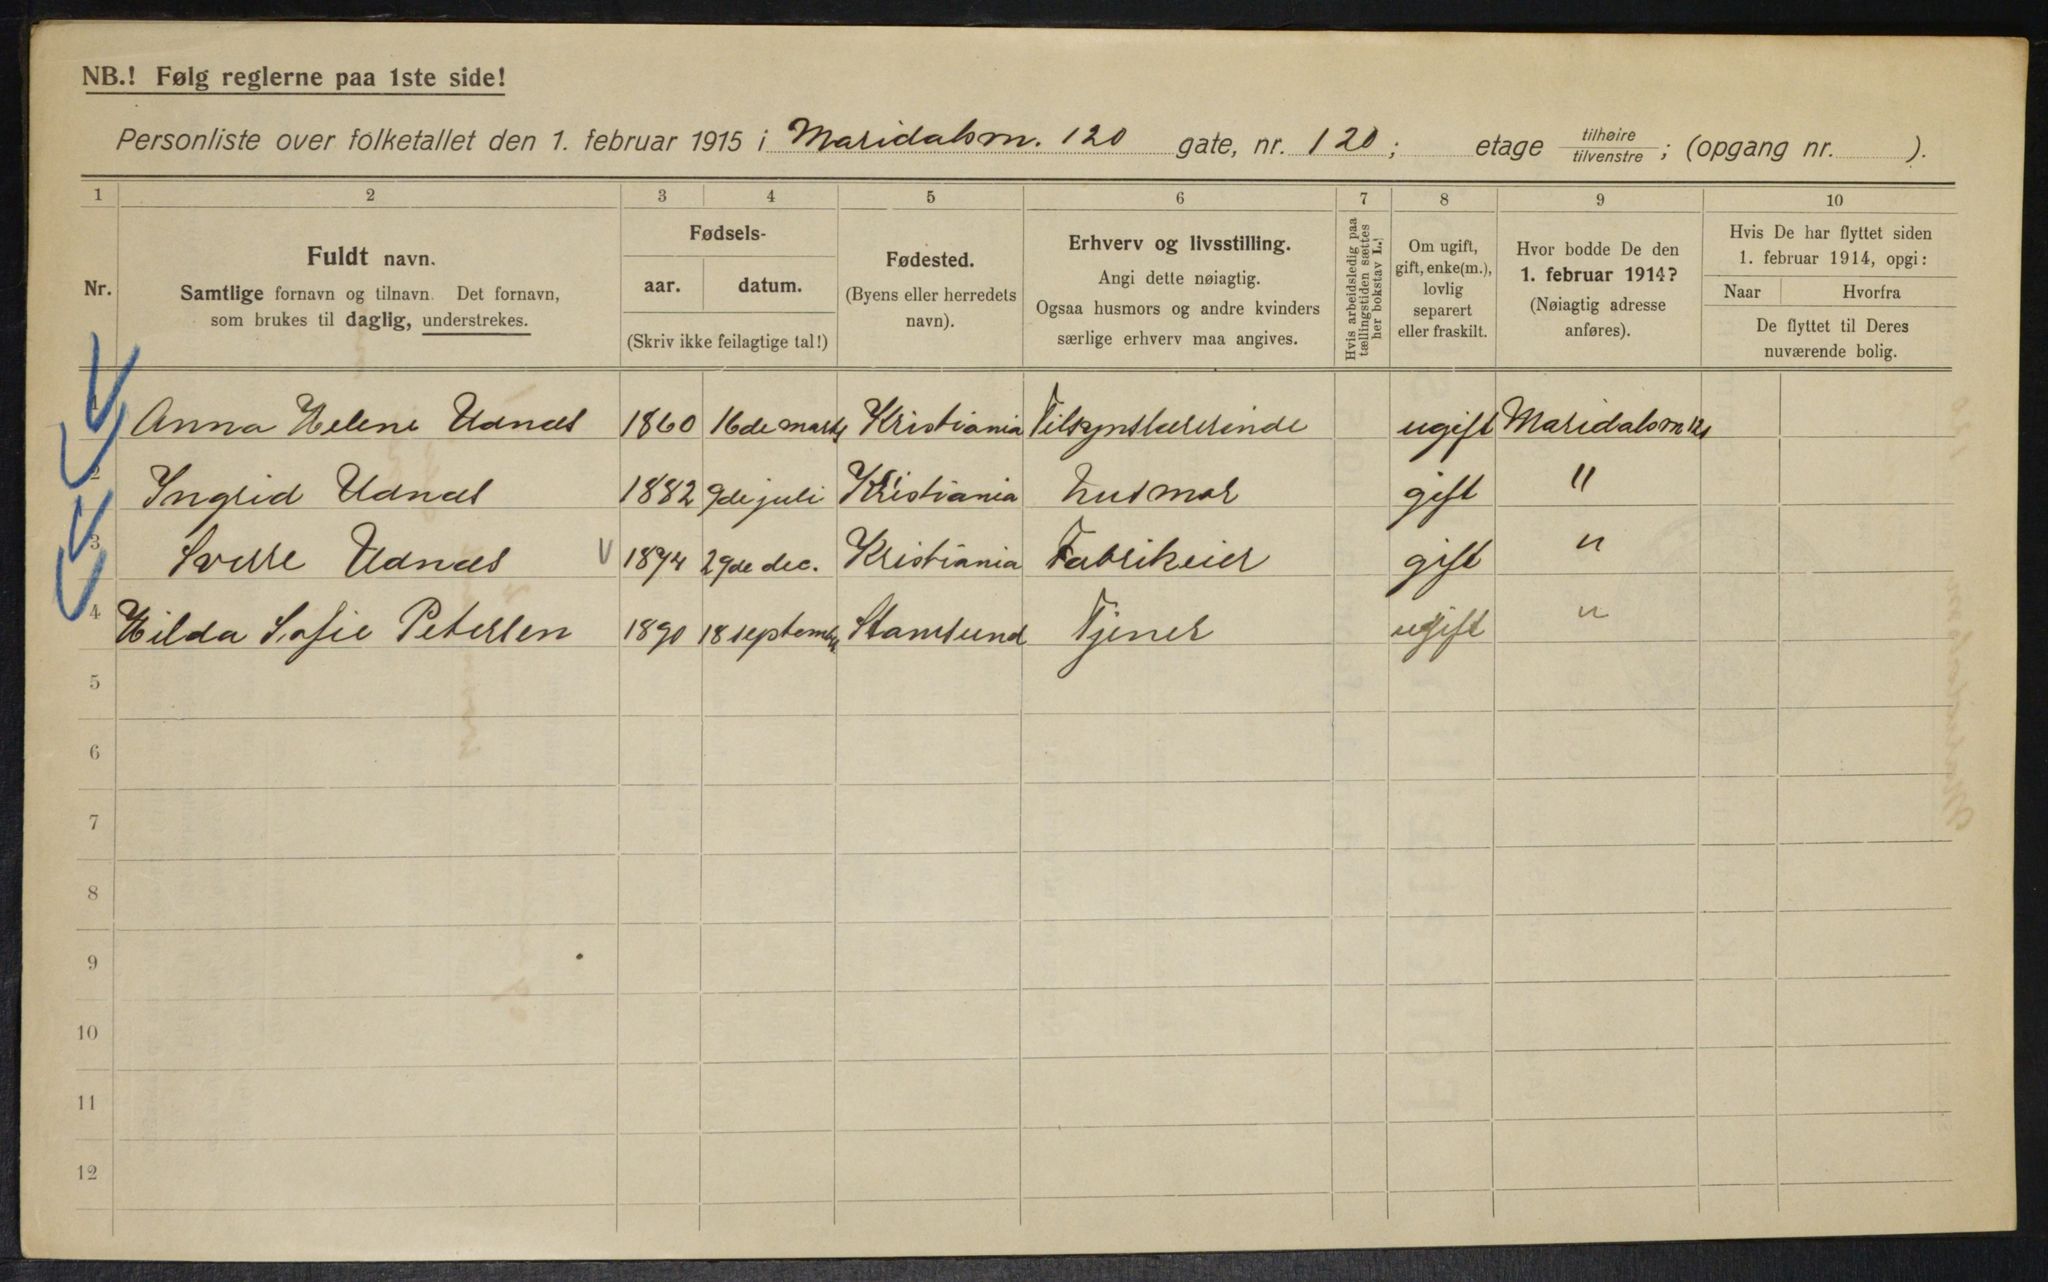 NB.! Følg reglerne paa 1ste side!
Personliste over folketallet den 1. februar 1915 i Maridalsm. 120 gate, nr. 120; etage tilhøire/tilvenstre; (opgang nr. ).
1 2 3 4 5 6 7 8 9 10
Nr.
Fuldt navn.
Samtlige fornavn og tilnavn. Det fornavn,
som brukes til daglig, understrekes.
Fødsels-
aar. datum.
(Skriv ikke feilagtige tal!)
Fødested.
(Byens eller herredets
navn).
Erhverv og livsstilling.
Angi dette nøiagtig.
Ogsaa husmors og andre kvinders
særlige erhverv maa angives.
Hvis arbeidsledig paa
tællingstiden sættes
her bokstav L.!
Om ugift,
gift, enke(m.),
lovlig
separert
eller fraskilt.
Hvor bodde De den
1. februar 1914?
(Nøiagtig adresse
anføres).
Hvis De har flyttet siden
1. februar 1914, opgi:
Naar Hvorfra
De flyttet til Deres
nuværende bolig.
1 Anna Helene Udnæs 1860 16de marts Kristiania Tilsynslærerinde ugift Maridalsm 120
2 Ingrid Udnæs 1882 9de juli Kristiania husmor gift "
3 Sverre Udnæs 1874 29de dec. Kristiania Fabrikeier gift "
4 Hilda Sofie Petersen 1890 18 septembr Stamsund Tjener ugift "
5
6
7
8
9
10
11
12